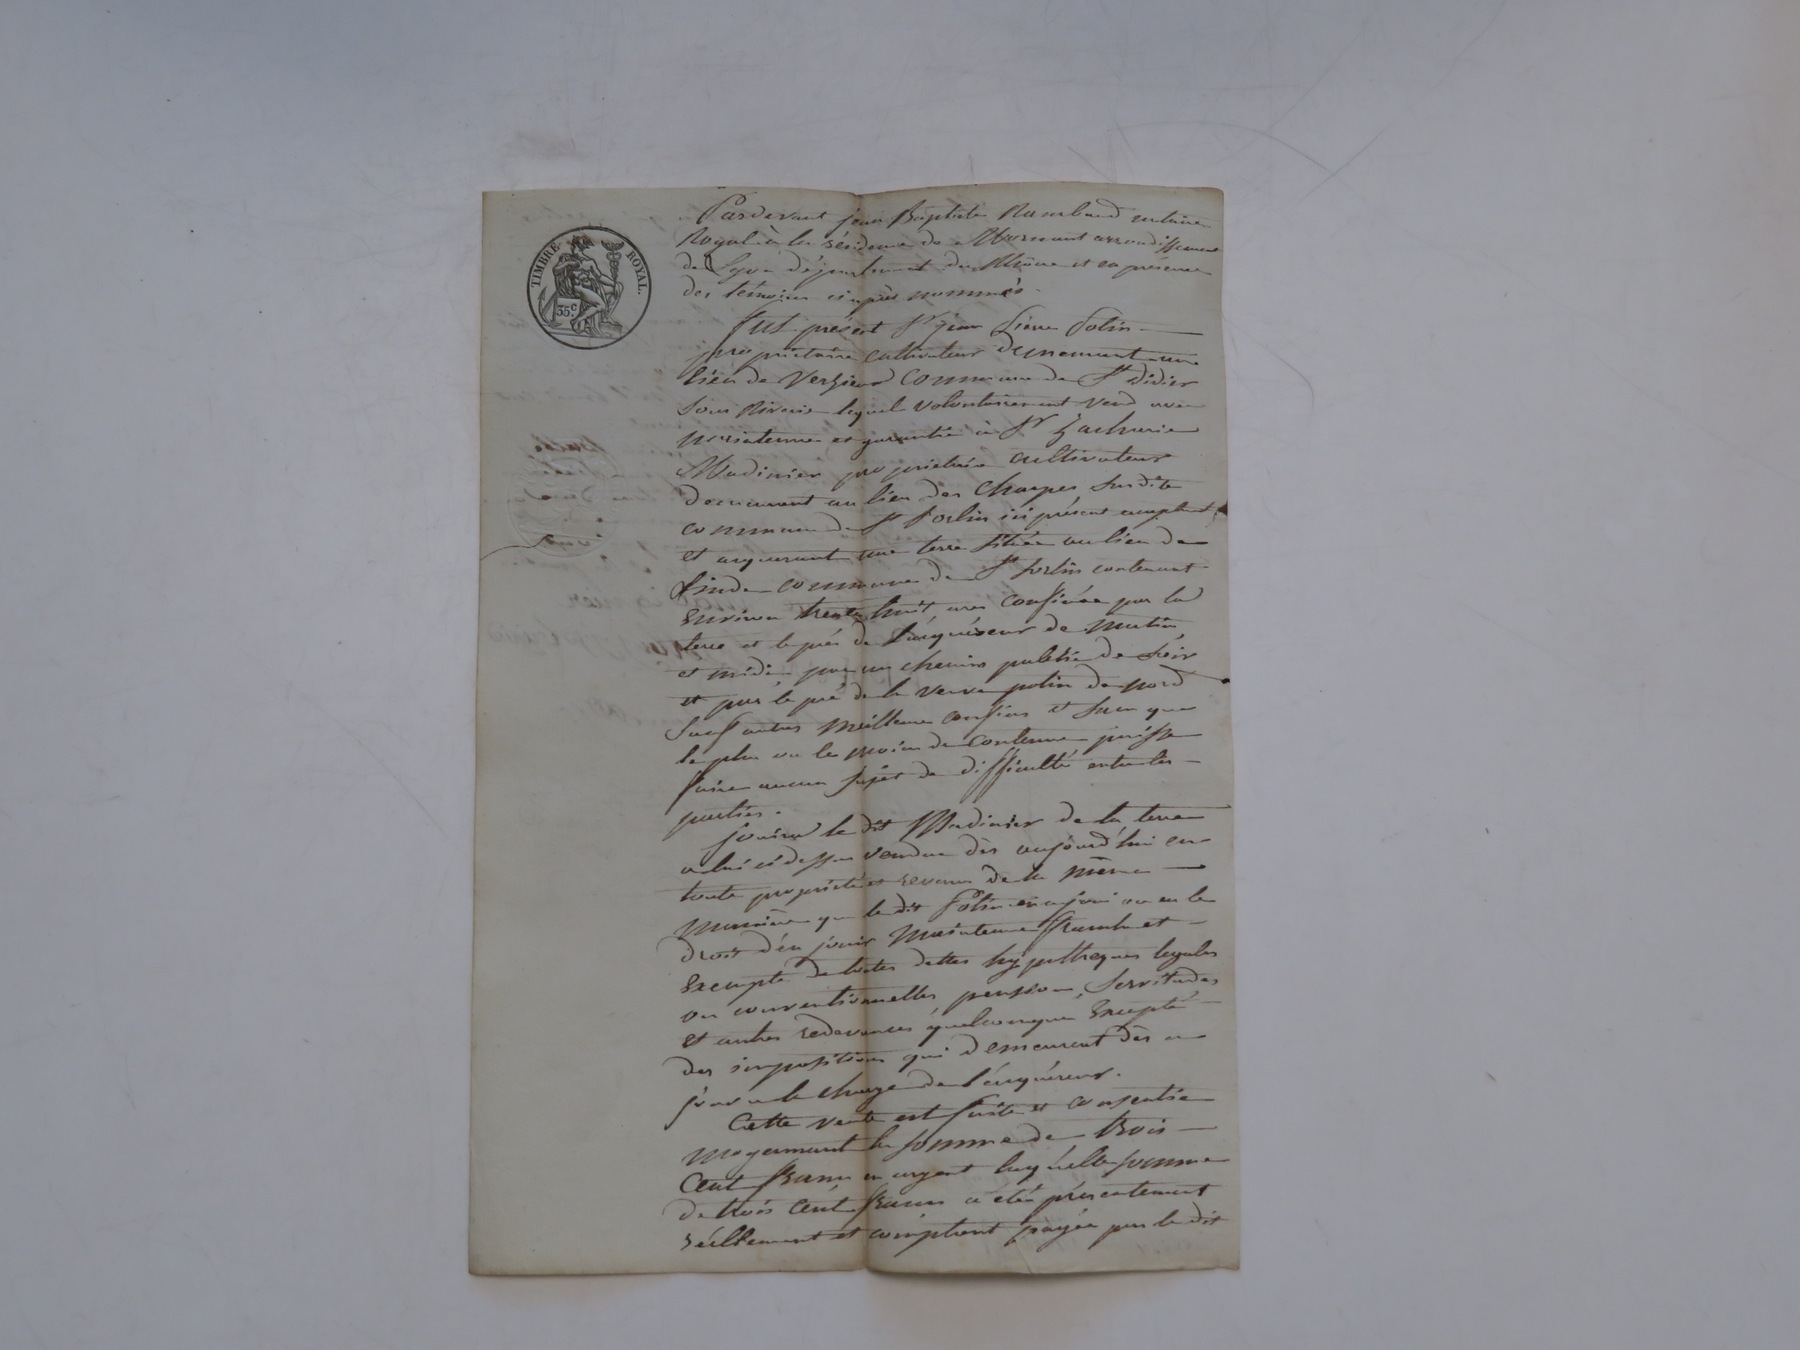 TIMBRE ROYAL.
35c
Pardevant jean Baptiste Rambaud notaire
Royal à la résidence de Mornant arrondissement
de Lyon département du Rhône et en présence
des témoins ci après nommés.
Fut présent Sr jean Pierre Potin
propriétaire cultivateur demeurant au
lieu de commune de St Didier
Sous Riverie lequel volontairement vend avec
maintenue et garantie à Sr Zacharie
Madinier propriétaire cultivateur
demeurant au lieu des Charpes susdite
commune de St Sorlin ici présent acceptant
et acquerant une terre située au lieu de
commune de St Sorlin contenant
Environ trente huit ares confinée par la
terre et le pré de l'acquéreur de matin
et midi par un chemin public de soir
et par le pré de la veuve potin de nord
Sauf autres meilleurs confins et sans que
le plus ou le moins de contenue puisse
faire aucun sujet de difficulté entre les
parties.
Jouira le dit Madinier de la terre
à lui ci dessus vendue dès aujourd'hui en
toute propriété et revenus de la même
manière que le dit Potin en a joui ou eu le
droit d'en jouir Maintenue franche et
Exempte de toutes dettes hypothèques légales
ou conventionnelles pension, servitudes
et autres redevances quelconque Excepté
des impositions qui demeurent dès ce
jour a la charge de l'acquéreur.
Cette vente est faite et consentie
moyennant la somme de trois
Cent francs en argent laquelle somme
de trois Cent francs a été présentement
réellement et comptant payée par le dit